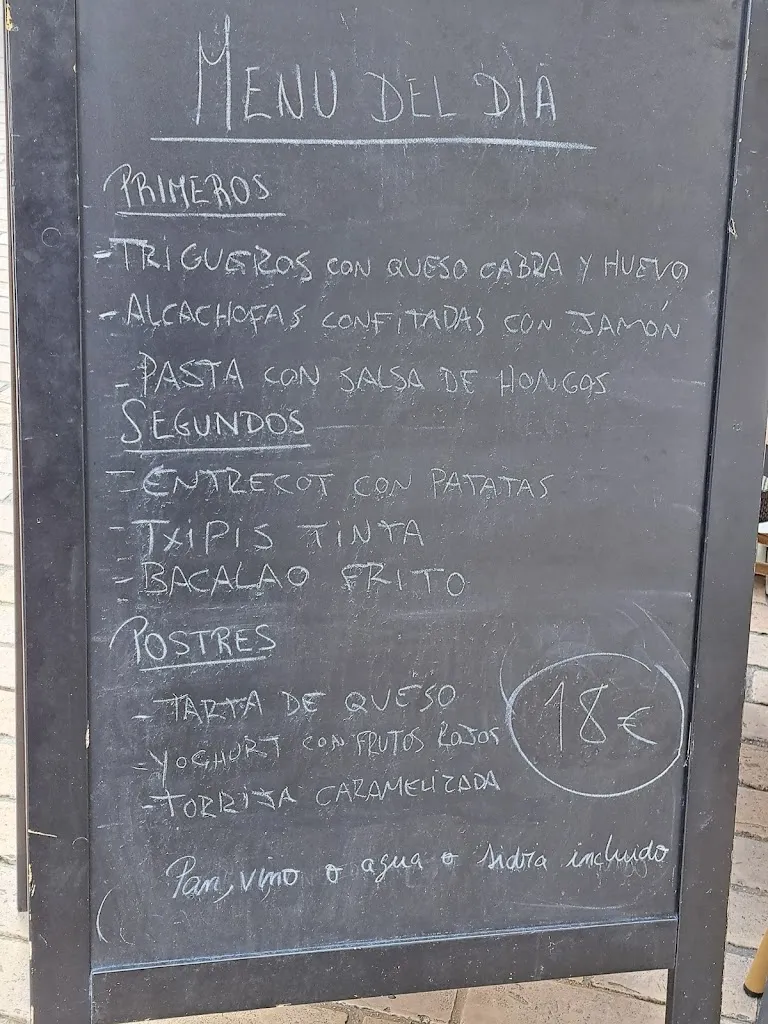 MENU DEL DIA
PRIMEROS
-TRIGUEROS CON QUESO CABRA Y HUEVO
-ALCACHOFAS CONFITADAS CON JAMÓN
-PASTA CON SALSA DE HONGOS
SEGUNDOS
-ENTRECOT CON PATATAS
-TXIPIS TINTA
-BACALAO FRITO
POSTRES
-TARTA DE QUESO
-YOGHURT CON FRUTOS ROJOS
-TORRIJA CARAMELIZADA
18€
Pan, vino o agua o sidra incluido